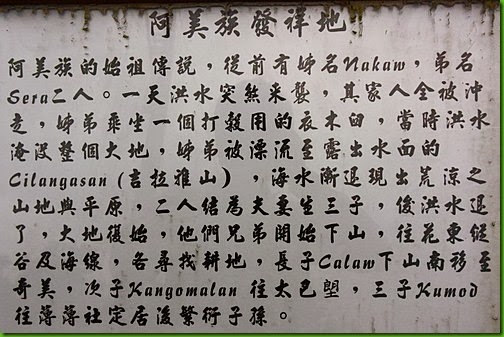 阿美族發祥地
阿美族的始祖傳說，從前有姊名Nakaw，弟名
Sera二人。一天洪水突然來襲，其家人全被沖
走，姊弟乘坐一個打穀用的衣木臼，當時洪水
淹沒整個大地，姊弟被漂流至露出水面的
Cilangasan (吉拉雅山) ，海水漸退現出荒涼之
山地與平原，二人結為夫妻生三子，後洪水退
了，大地復始，他們兄弟開始下山，往花東縱
谷及海線，各尋找耕地，長子Calaw下山南移至
奇美，次子Kangomalan 往太巴塱，三子Kumod
往薄薄社定居後繁衍子孫。